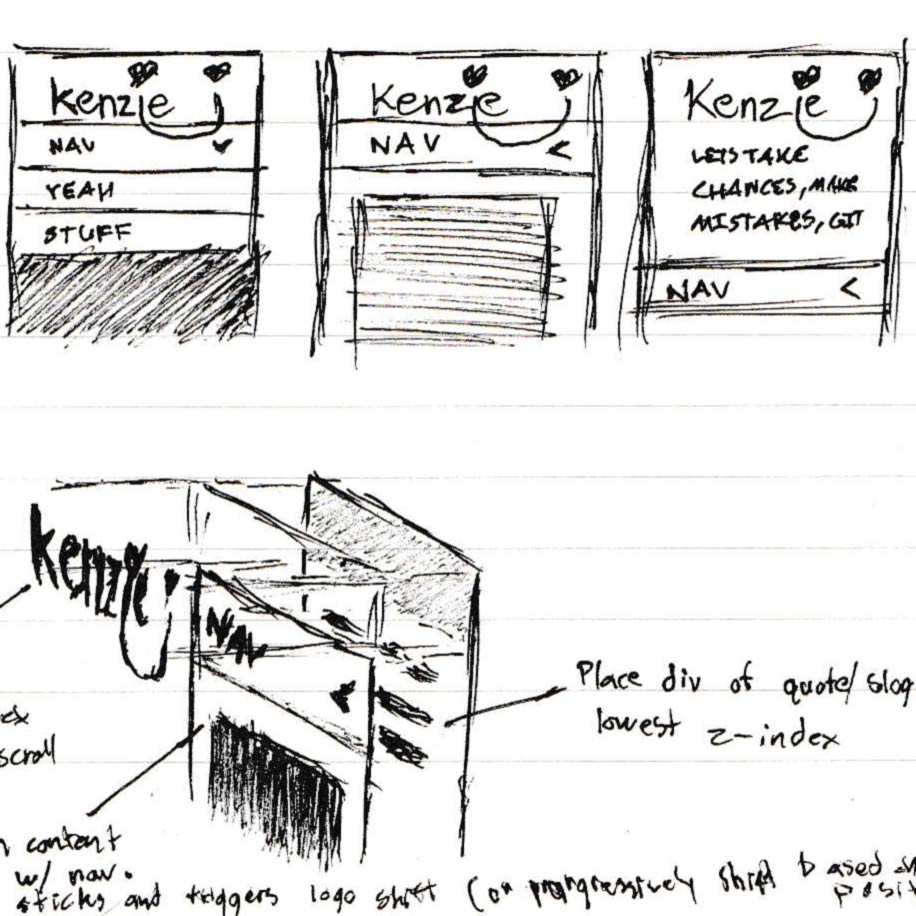 Kenzie
NAV
YEAH
STUFF
Kenzie
NAV <
Kenzie
LETS TAKE
CHANCES, MAKE
MISTAKES, GIT
NAV <
Kenzie
NAV
<
Place div of quote/slog
lowest z-index
scroll
content
w/ nav.
sticks and triggers logo shift (or progressively shift based on
posit